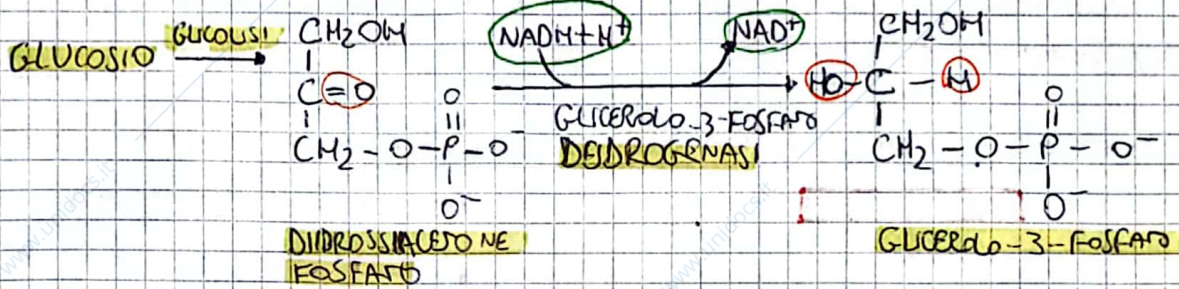 GLUCOSIO
GLICOLISI
CH2OH
C=O
CH2-O-P-O-
O
O-
DIIDROSSIACETONE
FOSFATO
NADH+H+
NAD+
GLICEROLO-3-FOSFATO
DEIDROGENASI
CH2OH
HO-C-H
CH2-O-P-O-
O
O-
GLICEROLO-3-FOSFATO
www.unidocs.it
www.unidocs.it